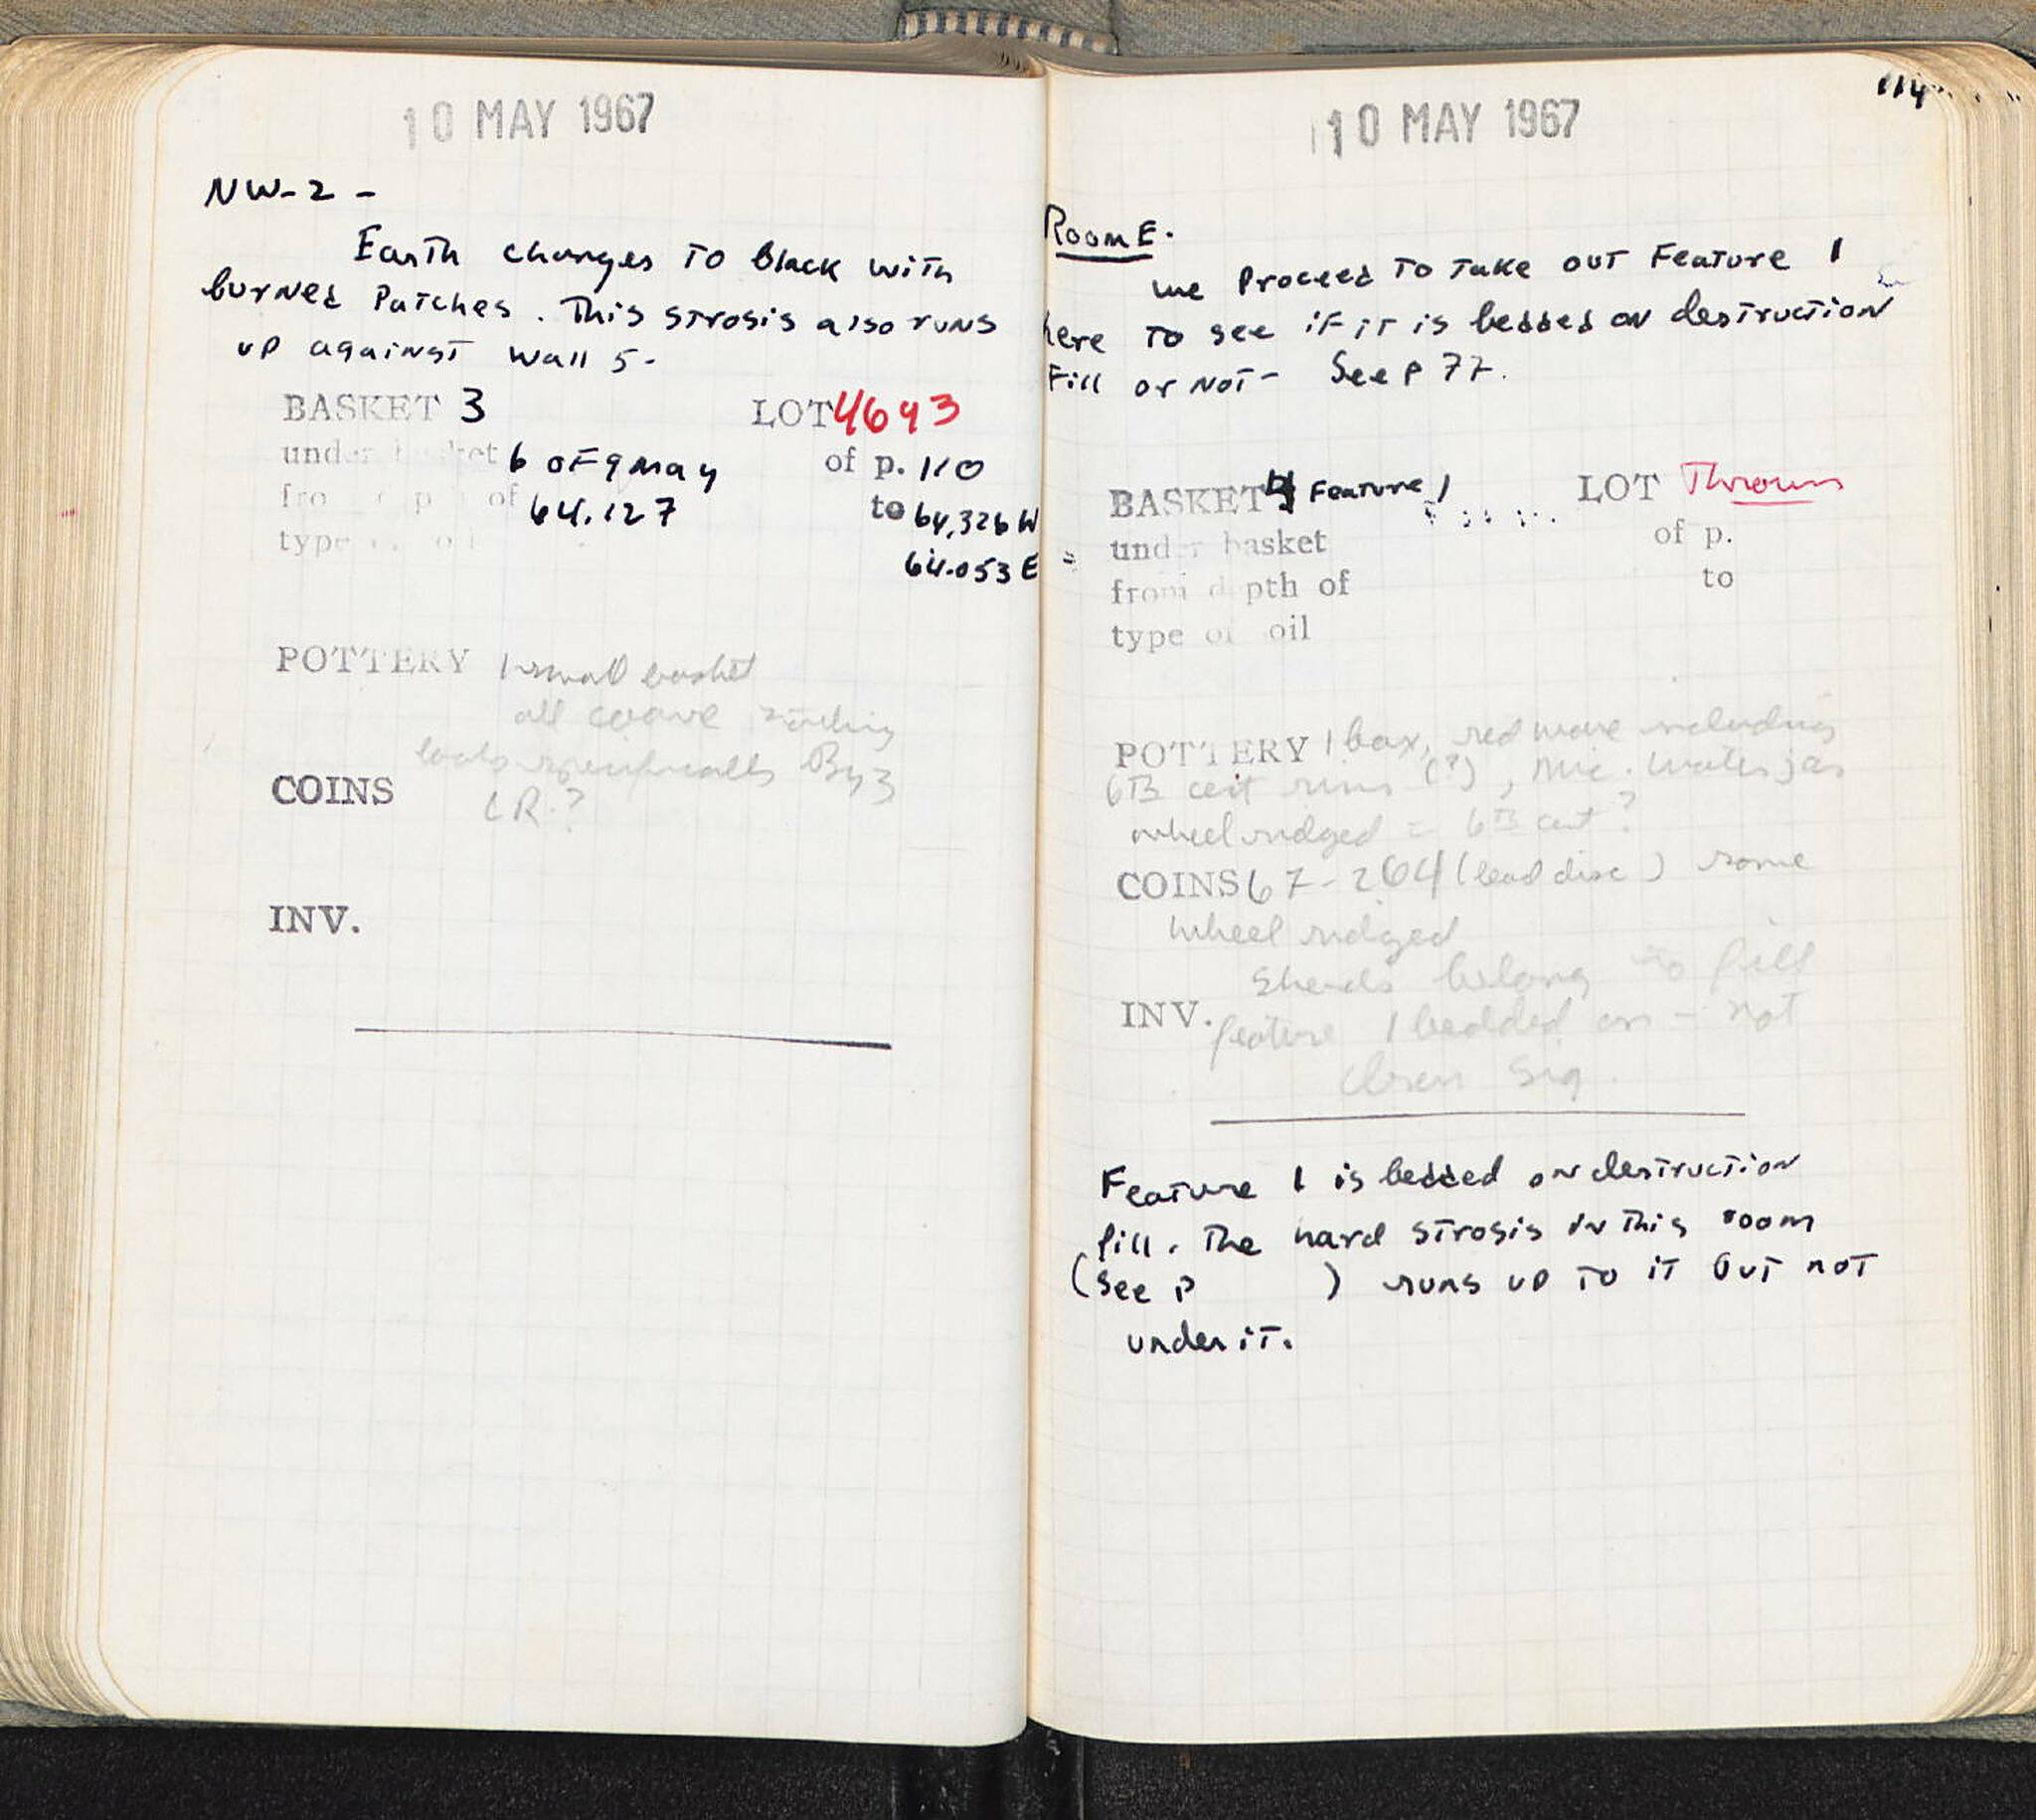 10 MAY 1967
NW-2 -
Earth changes to black with
burned patches. This strosis also runs
up against wall 5-
BASKET 3 LOT 4693
under basket 6 of 9 may of p. 110
from depth of 64.127 to 64,326 W
type of soil 64.053 E
POTTERY 1 small basket
all coarse nothing
looks specifically Byz
LR.?
COINS
INV.
114
10 MAY 1967
Room E.
we proceed to take out Feature 1
here to see if it is bedded on destruction
Fill or not - See p 77.
BASKET 4 Feature 1 LOT Thrown
under basket of p.
from depth of to
type of soil
POTTERY 1 box, red ware including
6th cent rims (?), mic. water jar
wheel ridged = 6th cent?
COINS 67-264 (lead disc) some
wheel ridged
sherds belong to fill
INV. feature 1 bedded on - not
sig.
Feature 1 is bedded on destruction
fill. The hard strosis in this room
(see p ) runs up to it but not
under it.